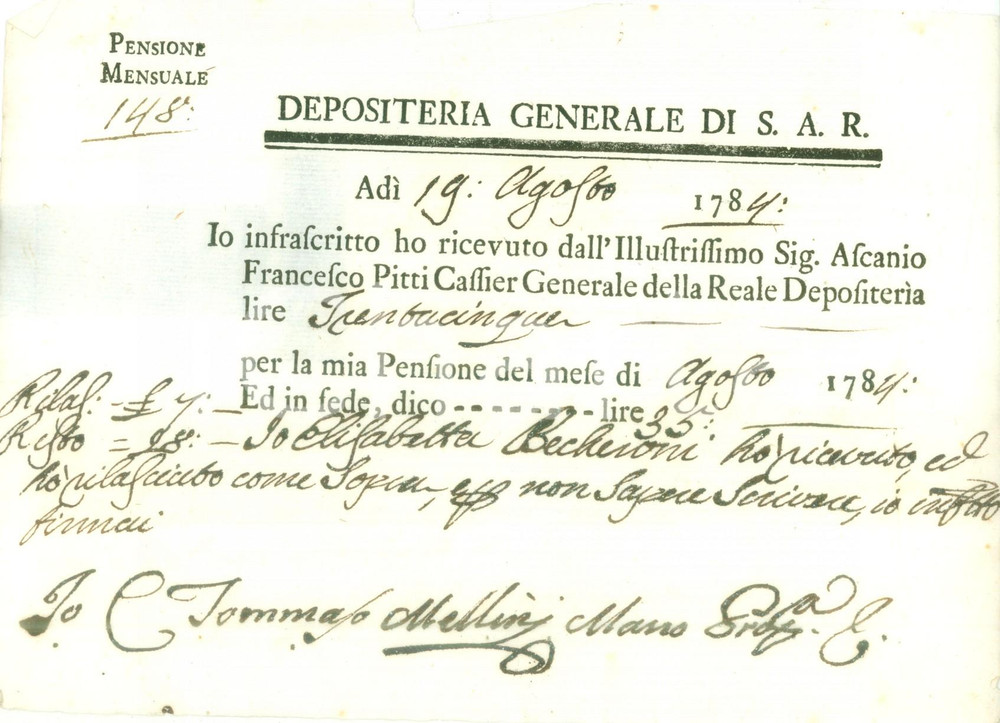 PENSIONE
MENSUALE
148:
DEPOSITERIA GENERALE DI S. A. R.
Adì 19: Agosto 1784:
Io infraſcritto ho ricevuto dall'Illuſtriſſimo Sig. Aſcanio
Franceſco Pitti Caſſier Generale della Reale Depoſiterìa
lire Trentacinque
per la mia Penſione del meſe di Agosto 1784:
Ed in fede, dico - - - - - - - - lire 35:
Rilas: - £ 7: -
Resto = 28: - Io Elisabetta Becheroni ho ricevuto, ed
ho rilasciato come Sopra, e non Sapere Scrivere, io infrtto
firmai
Io Tommaso Mellini Mano